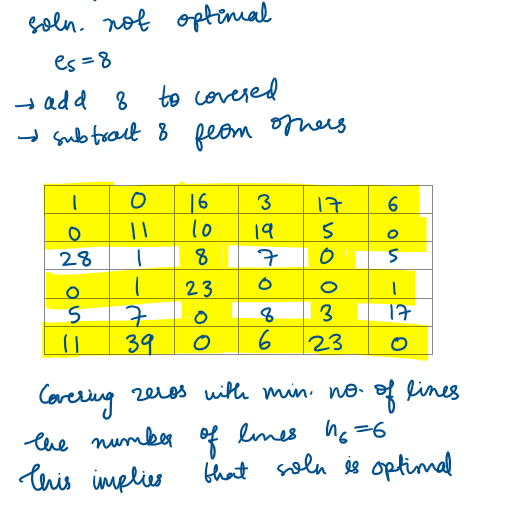 soln. not optimal
es = 8
→ add 8 to covered
→ subtract 8 from others
1 0 16 3 17 6
0 11 10 19 5 0
28 1 8 7 0 5
0 1 23 0 0 1
5 7 0 8 3 17
11 39 0 6 23 0
Covering zeros with min. no. of lines
the number of lines n6 = 6
This implies that soln is optimal